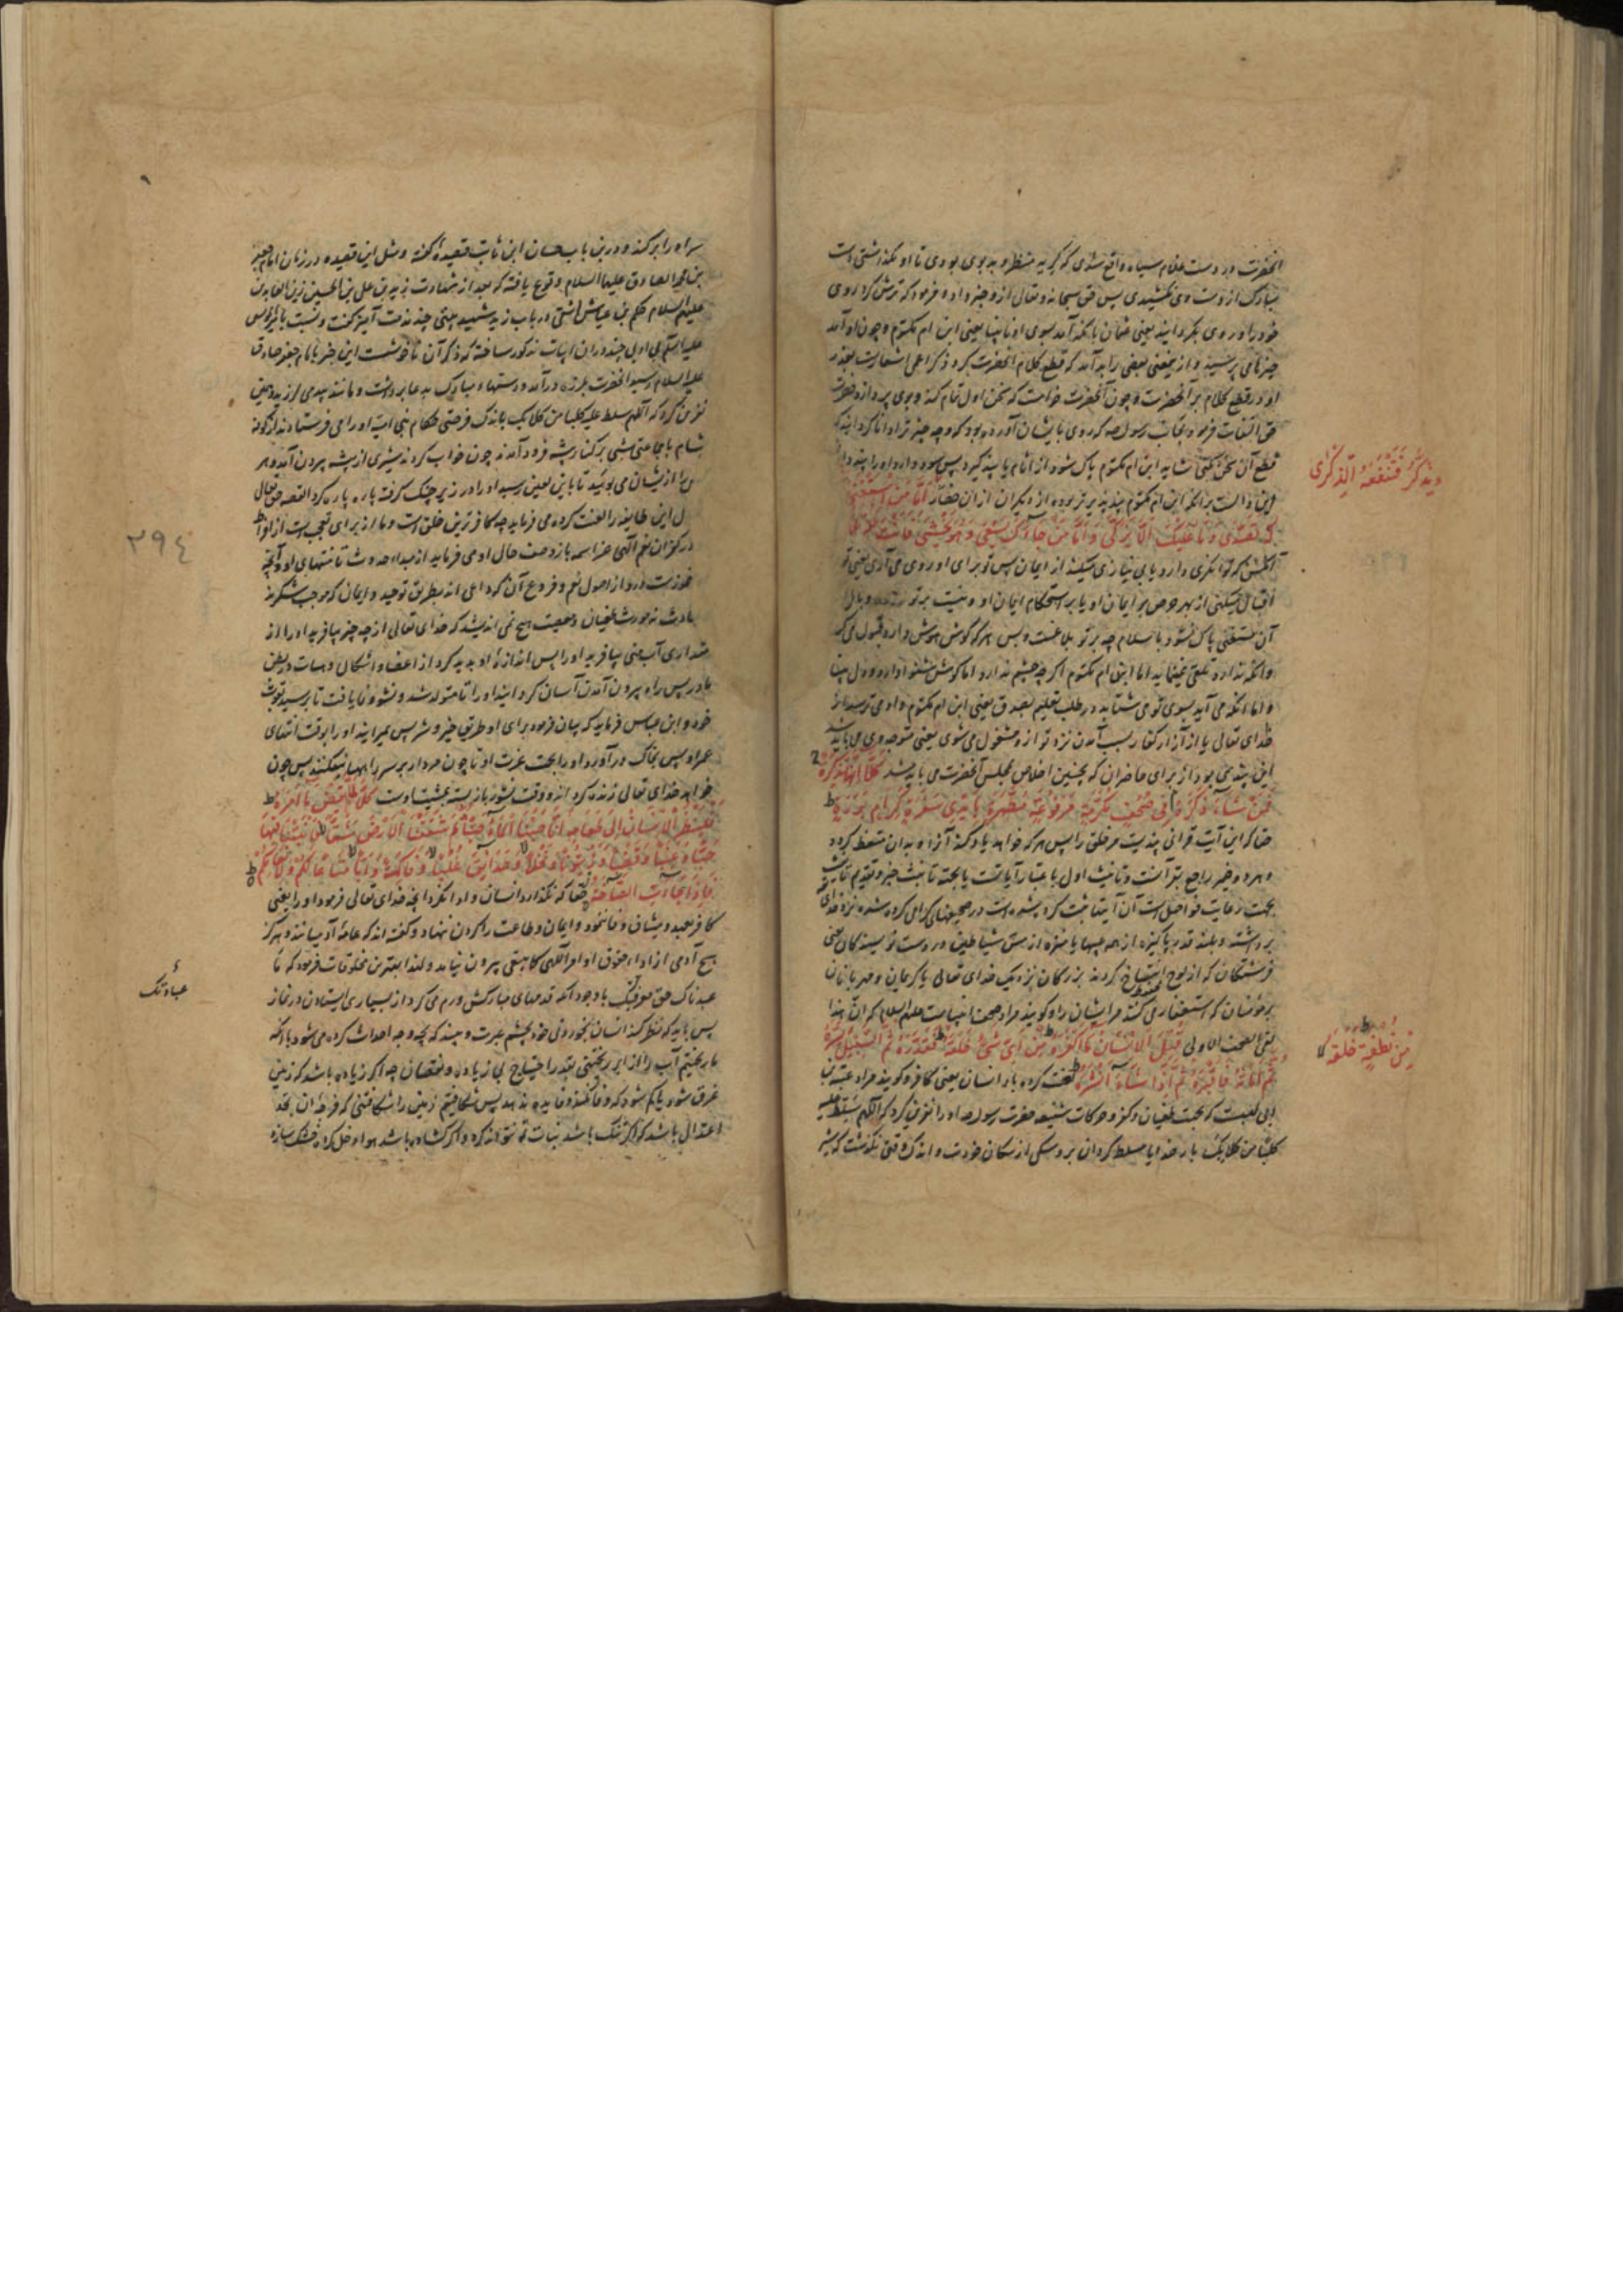 آنحضرت در دست غلام سیاه واقع شدی که کریه منظر و بدبوی بودی تا او نگذاشتی دست
مبارک از دست وی نکشیدی پس حق سبحانه و تعالی ازو خبر داده فرمود که ترش کرد روی
خود را و روی بگردانید یعنی عثمان بآنکه آمد بسوی او نابینا یعنی ابن ام مکتوم و چون او آمد
او در قطع کلام بر آنحضرت و چون آنحضرت خواست که سخن اول تمام کند و بوی پردازد حضرت
حق التفات فرمود بجانب رسول صه که روی بایشان آورده بود که و چه چیز ترا دانا گردانید که
قطع آن سخن کنی شاید ابن ام مکتوم پاک شود از آثام یا پند گیرد پس سود دارد او را پند دادن
این دالست برانکه ابن ام مکتوم پند پذیرتر بوده از دیگران از ان حضار اَمَّا مَنِ اسْتَغْنَى
لَهُ تَصَدَّى وَمَا عَلَيْكَ اَلَّا يَزَّكَّى وَاَمَّا مَنْ جَاءَكَ يَسْعَى وَهُوَ يَخْشَى فَاَنْتَ عَنْهُ
آنکس که توانگری دارد یا بی نیازی میکند از ایمان پس تو برای او روی می آری یعنی تو
اقبال میکنی از بهر حرص بر ایمان او یا بر استحکام ایمان او و نیست بر تو وبال
آن مستغنی پاک نشود باسلام چه بر تو بلاغست و بس هر که گوش هوش دارد قبول می کند
وانکه ندارد تلقی نمینماید اما ابن ام مکتوم اگر چه چشم ندارد اما گوش شنوا دارد و دل بینا
و اما انکه می آید بسوی تو می شتابد در طلب تعلیم بصدق یعنی ابن ام مکتوم و او می ترسد از
خدای تعالی یا از آزار کفار بسبب آمدن نزد تو ازو مشغول می شوی یعنی متوجه وی می باید شد
این پندی بود از برای حاضران که چنین اخلاص بمجلس آنحضرت می باید شد كَلَّا اِنَّهَا تَذْكِرَةٌ
فَمَنْ شَاءَ ذَكَرَهُ فِي صُحُفٍ مُكَرَّمَةٍ مَرْفُوعَةٍ مُطَهَّرَةٍ بِاَيْدِي سَفَرَةٍ كِرَامٍ بَرَرَةٍ
حقا که این آیت قرانی پندیست مر خلق را پس هر که خواهد یاد کند آنرا و بدان متعظ گردد
و هر دو ضمیر راجع بقرآنست و تانیث اول باعتبار آیاتست یا بجهة تانیث خبر و تقدیم
بجهت رعایت فواصل است آن آیتها ثبت کرده شده است در صحیفهای گرامی کرده شده نزد خدای
برداشته و بلند قدر پاکیزه از همه عیبها یا منزه از مس شیاطین در دست نویسندگان یعنی
فرشتگان که از لوح استنساخ کردند بزرگان نزدیک خدای تعالی یا کریمان و مهربانان
بر مؤمنان که استغفار می کنند مر ایشان را و گویند مراد صحف انبیاست علیهم السلام که ان هذا
لفی الصحف الاولی قُتِلَ الْاِنْسَانُ مَا اَكْفَرَهُ مِنْ اَيِّ شَيْءٍ خَلَقَهُ فَقَدَّرَهُ ثُمَّ السَّبِيلَ يَسَّرَهُ
ثُمَّ اَمَاتَهُ فَاَقْبَرَهُ ثُمَّ اِذَا شَاءَ اَنْشَرَهُ لعنت کرده باد انسان یعنی کافر و گویند مراد عتبه بن
ابی لهبست که بجهت طغیان و کفر و حرکات شنیعه حضرت رسول صه او را نفرین کرد که اللهم سلط علیه
کلبا من کلابک بار خدایا مسلط گردان برو سگی از سگان خودت و اندک وقتی نگذشت که شیر
وَيَذَّكَّرُ فَتَنْفَعَهُ الذِّكْرَى
مِنْ نُطْفَةٍ خَلَقَهُ
سر او را بر کند و درین باب حسان ابن ثابت قصیده گفته و مثل این قصیده در زمان امام جعفر
بن محمد الصادق علیهما السلام وقوع یافته که بعد از شهادت زید بن علی بن الحسین زین العابدین
علیه السلام رسید آنحضرت بلرزه درآمد و دستهای مبارک بدعا برداشت و مانند بید می لرزید و بعین
نفرین کرد که اللهم سلط علیه کلبا من کلابک باندک فرصتی حکام بنی امیه او را می فرستادند از کوفه
شام با جماعتی شبی بر کنار بیشه فرود آمدند چون خواب کردند شیری از بیشه بیرون آمد و هر
را از ایشان می بوئید تا باین لعین رسید او را در زیر چنگ گرفته پاره پاره کرد القصه حق تعالی
این طایفه را لعنت کرده می فرماید چه کافر ترین خلق است و ما از برای تعجب است از افراط
در کفران نعم الهی عز اسمه باز وصف حال او می فرماید از مبداء حدوث تا منتهای او و آنچه
مقداری آب منی بیافرید او را پس اندازهٔ او پدید کرد از اعضا و اشکال و هیات در بطن
مادر پس راه بیرون آمدن آسان گردانید او را تا متولد شد و نشو و نما یافت تا برسید بقوت
خود و ابن عباس فرماید که بیان فرمود برای او طریق خیر و شر پس بمیرانید او را بوقت انتهای
عمر او پس بخاک درآورد او را بجهت عزت او تا چون مردار بر سر راهها نیفکنند پس چون
خواهد خدای تعالی زنده کرداند و وقت نشور باز بسته بمشیت اوست كَلَّا لَمَّا يَقْضِ مَا اَمَرَهُ
فَلْيَنْظُرِ الْاِنْسَانُ اِلَى طَعَامِهِ اَنَّا صَبَبْنَا الْمَاءَ صَبًّا ثُمَّ شَقَقْنَا الْاَرْضَ شَقًّا فَاَنْبَتْنَا فِيهَا
حَبًّا وَعِنَبًا وَقَضْبًا وَزَيْتُونًا وَنَخْلًا وَحَدَائِقَ غُلْبًا وَفَاكِهَةً وَاَبًّا مَتَاعًا لَكُمْ وَلِاَنْعَامِكُمْ
فَاِذَا جَاءَتِ الصَّاخَّةُ حقا که نگذارد انسان و ادا نکرد آنچه خدای تعالی فرمود او را یعنی
کافر بعهد و میثاق وفا ننمود و ایمان و طاعت را گردن ننهاد و گفته اند که عامهٔ آدمیانند و هرگز
هیچ آدمی از اداء حقوق اوامر الهی کما ینبغی بیرون نیاید ولهذا بهترین مخلوقات فرمود که ما
عبدناک حق معرفتک باوجود آنکه قدمهای مبارکش ورم می کرد از بسیاری ایستادن در نماز
پس باید که نظر کند انسان بخوردنی خود بچشم عبرت و بیند که بچه وجه احداث کرده می شود با آنکه
ما ریختیم آب را از ابر ریختنی بقدر احتیاج بی زیاده و نقصان چه اگر زیاده باشد که زمین
غرق شود یا کم شود که وفا نکند و فایده ندهد پس شکافتیم زمین را شکافتنی که فرجهٔ آن بحد
اعتدال باشد که اگر تنگ باشد نبات نمو نتواند کرد و اگر گشاده باشد هوا دخل کرده خشک سازد
عبادتک
٢٩٤